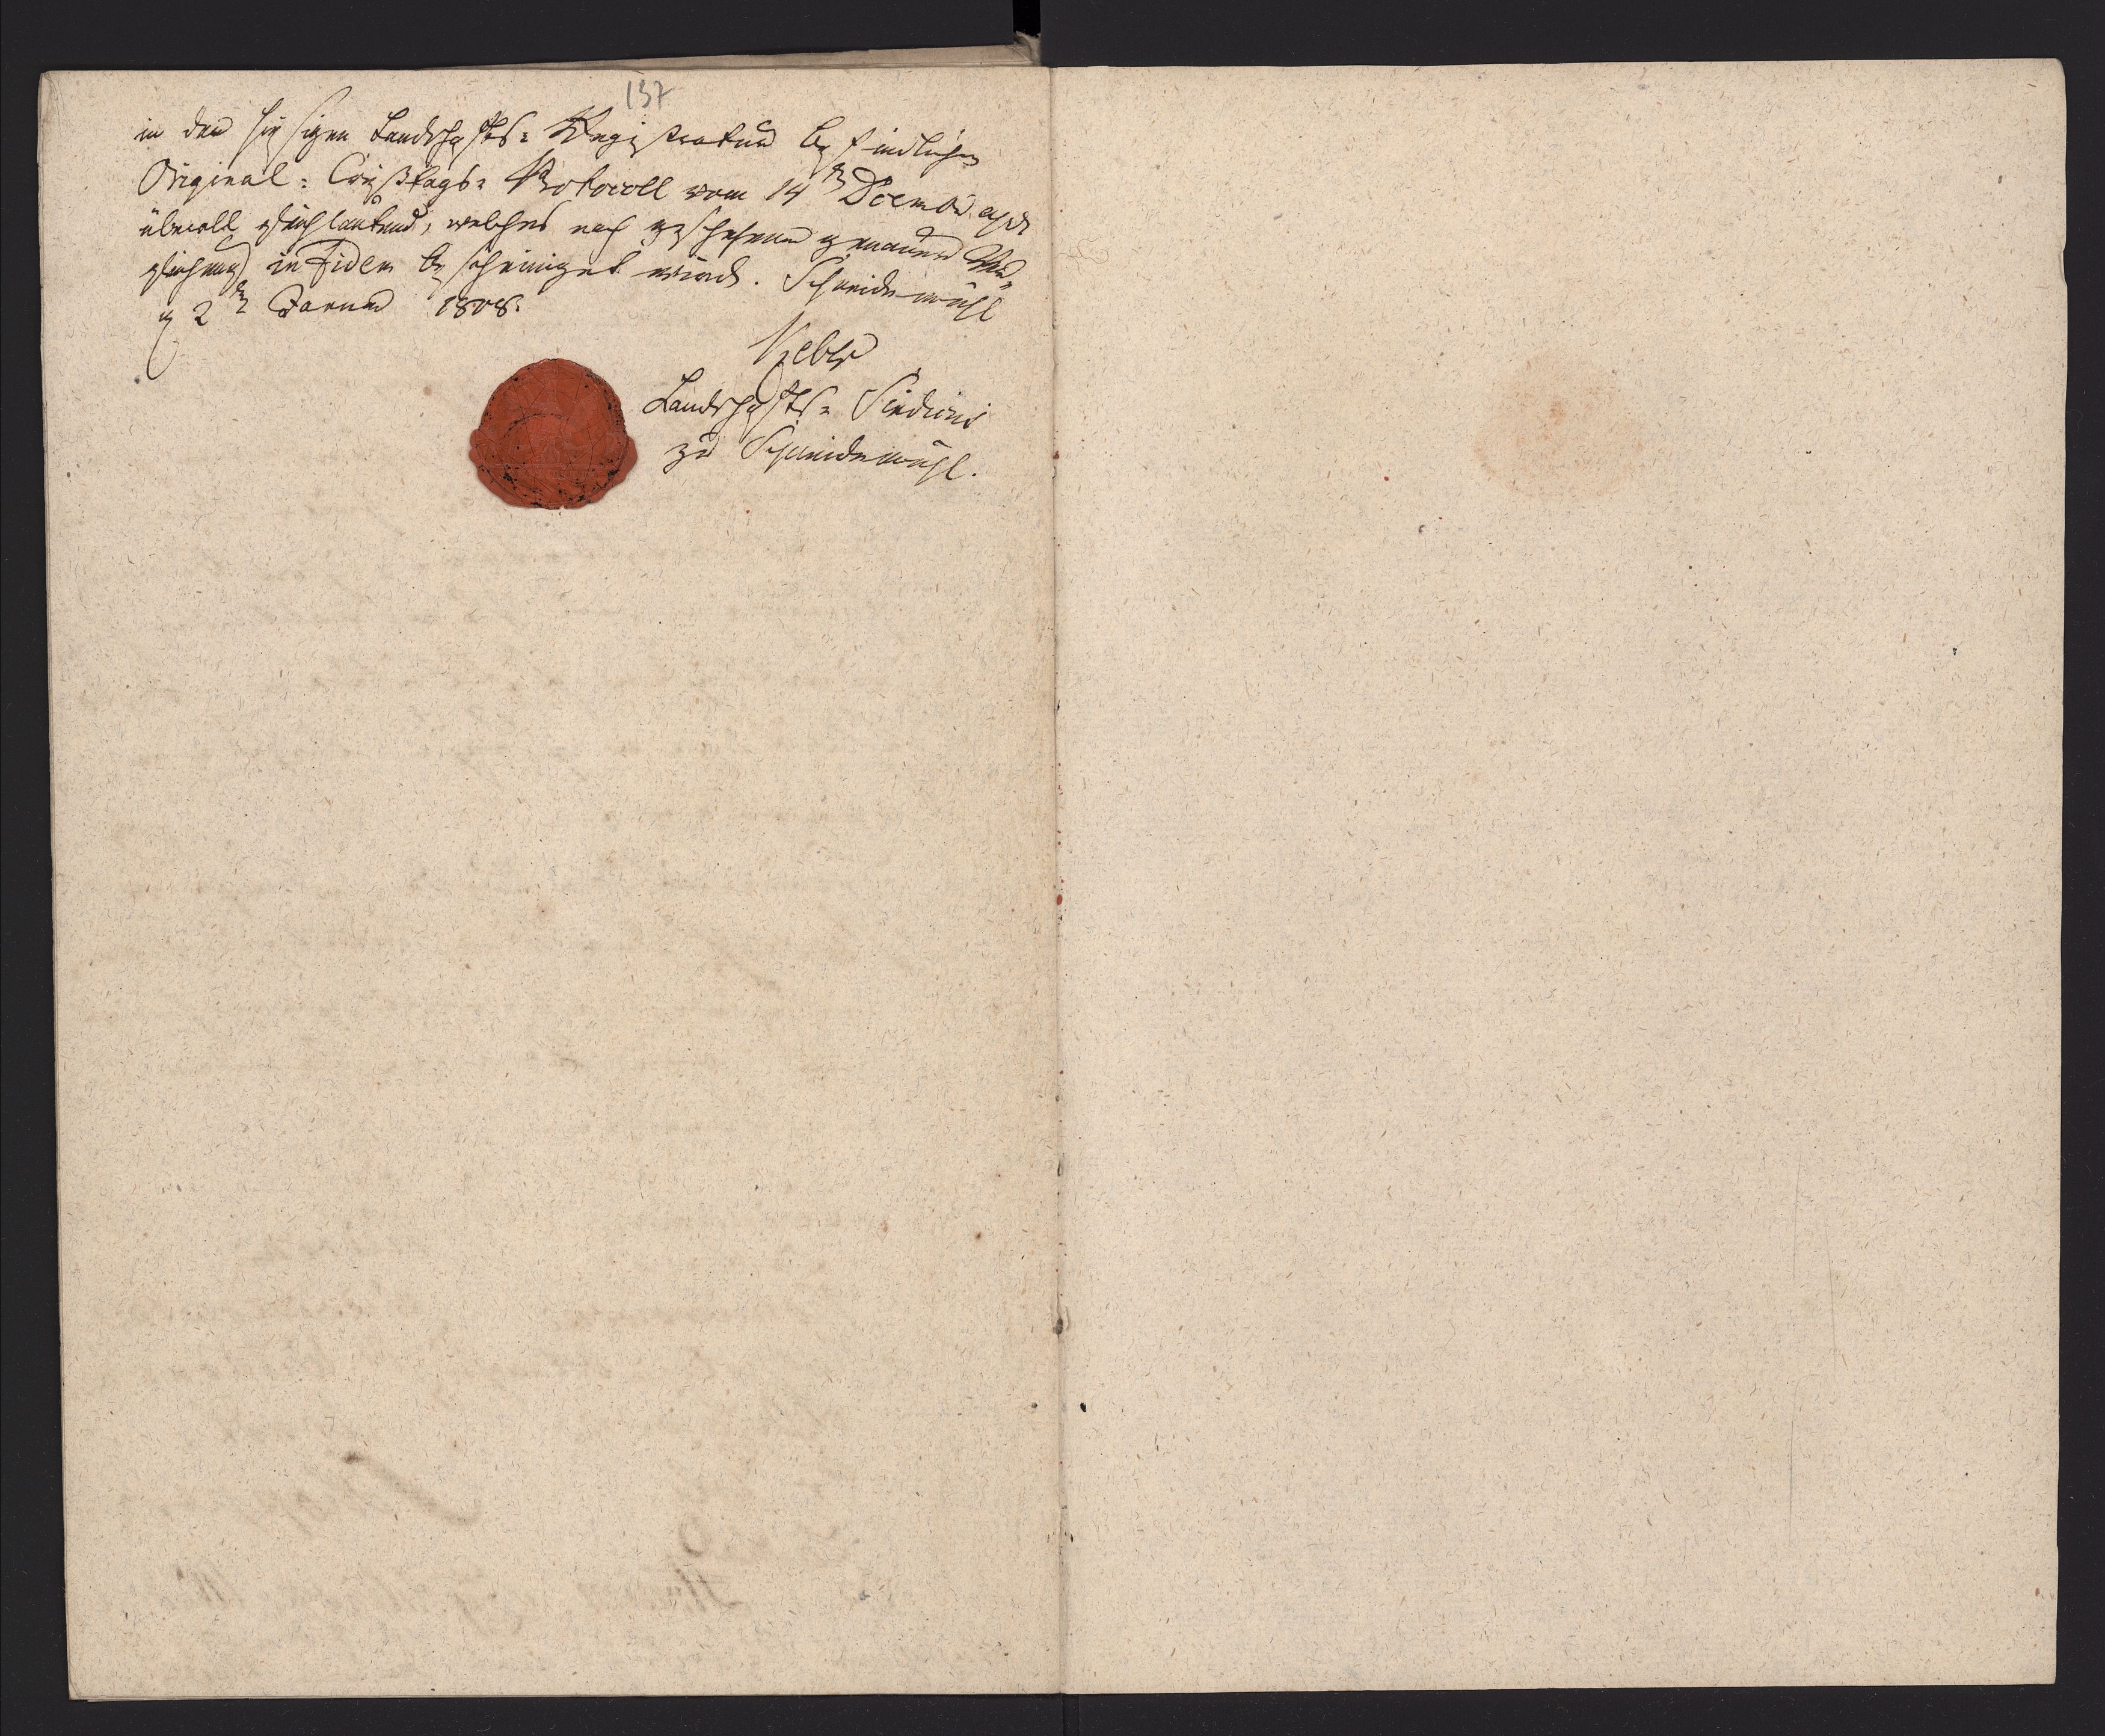 137
in der hiesigen Landschafts-Registratur befindlichen
Original-Creißtags-Protocoll vom 14t Dcembr
überall gleichlautend, welches nach geschehener genauer Ver-
gleichung in Fidem bescheiniget wird. Schneidemühl
d 2t Januar 1808.
Landschafts-Sindicus
zu Schneidemühl.